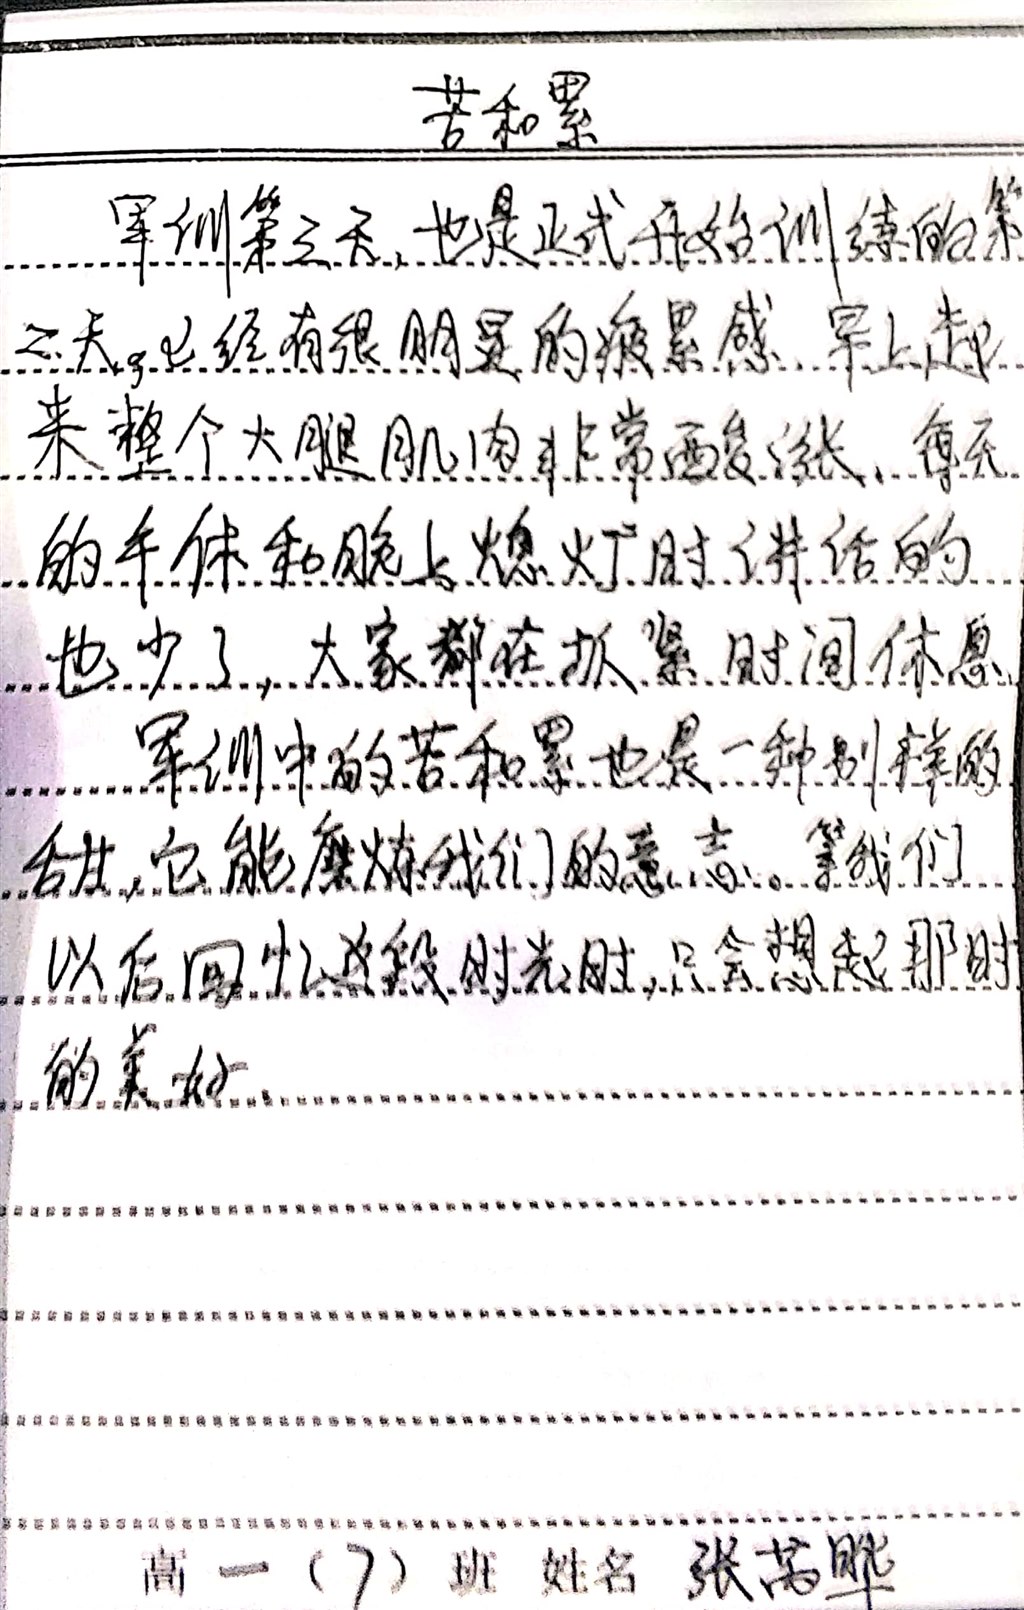 苦和累
军训第三天,也是正式开始训练的第
二天,已经有很明显的疲累感、早上起
来整个大腿肌肉非常酸涨、每天
的午休和晚上熄灯时讲话的
也少了,大家都在抓紧时间休息
军训中的苦和累也是一种别样的
甜,它能磨炼我们的意志。等我们
以后回忆这段时光时,只会想起那时
的美好.
高一(7)班 姓名 张万晔